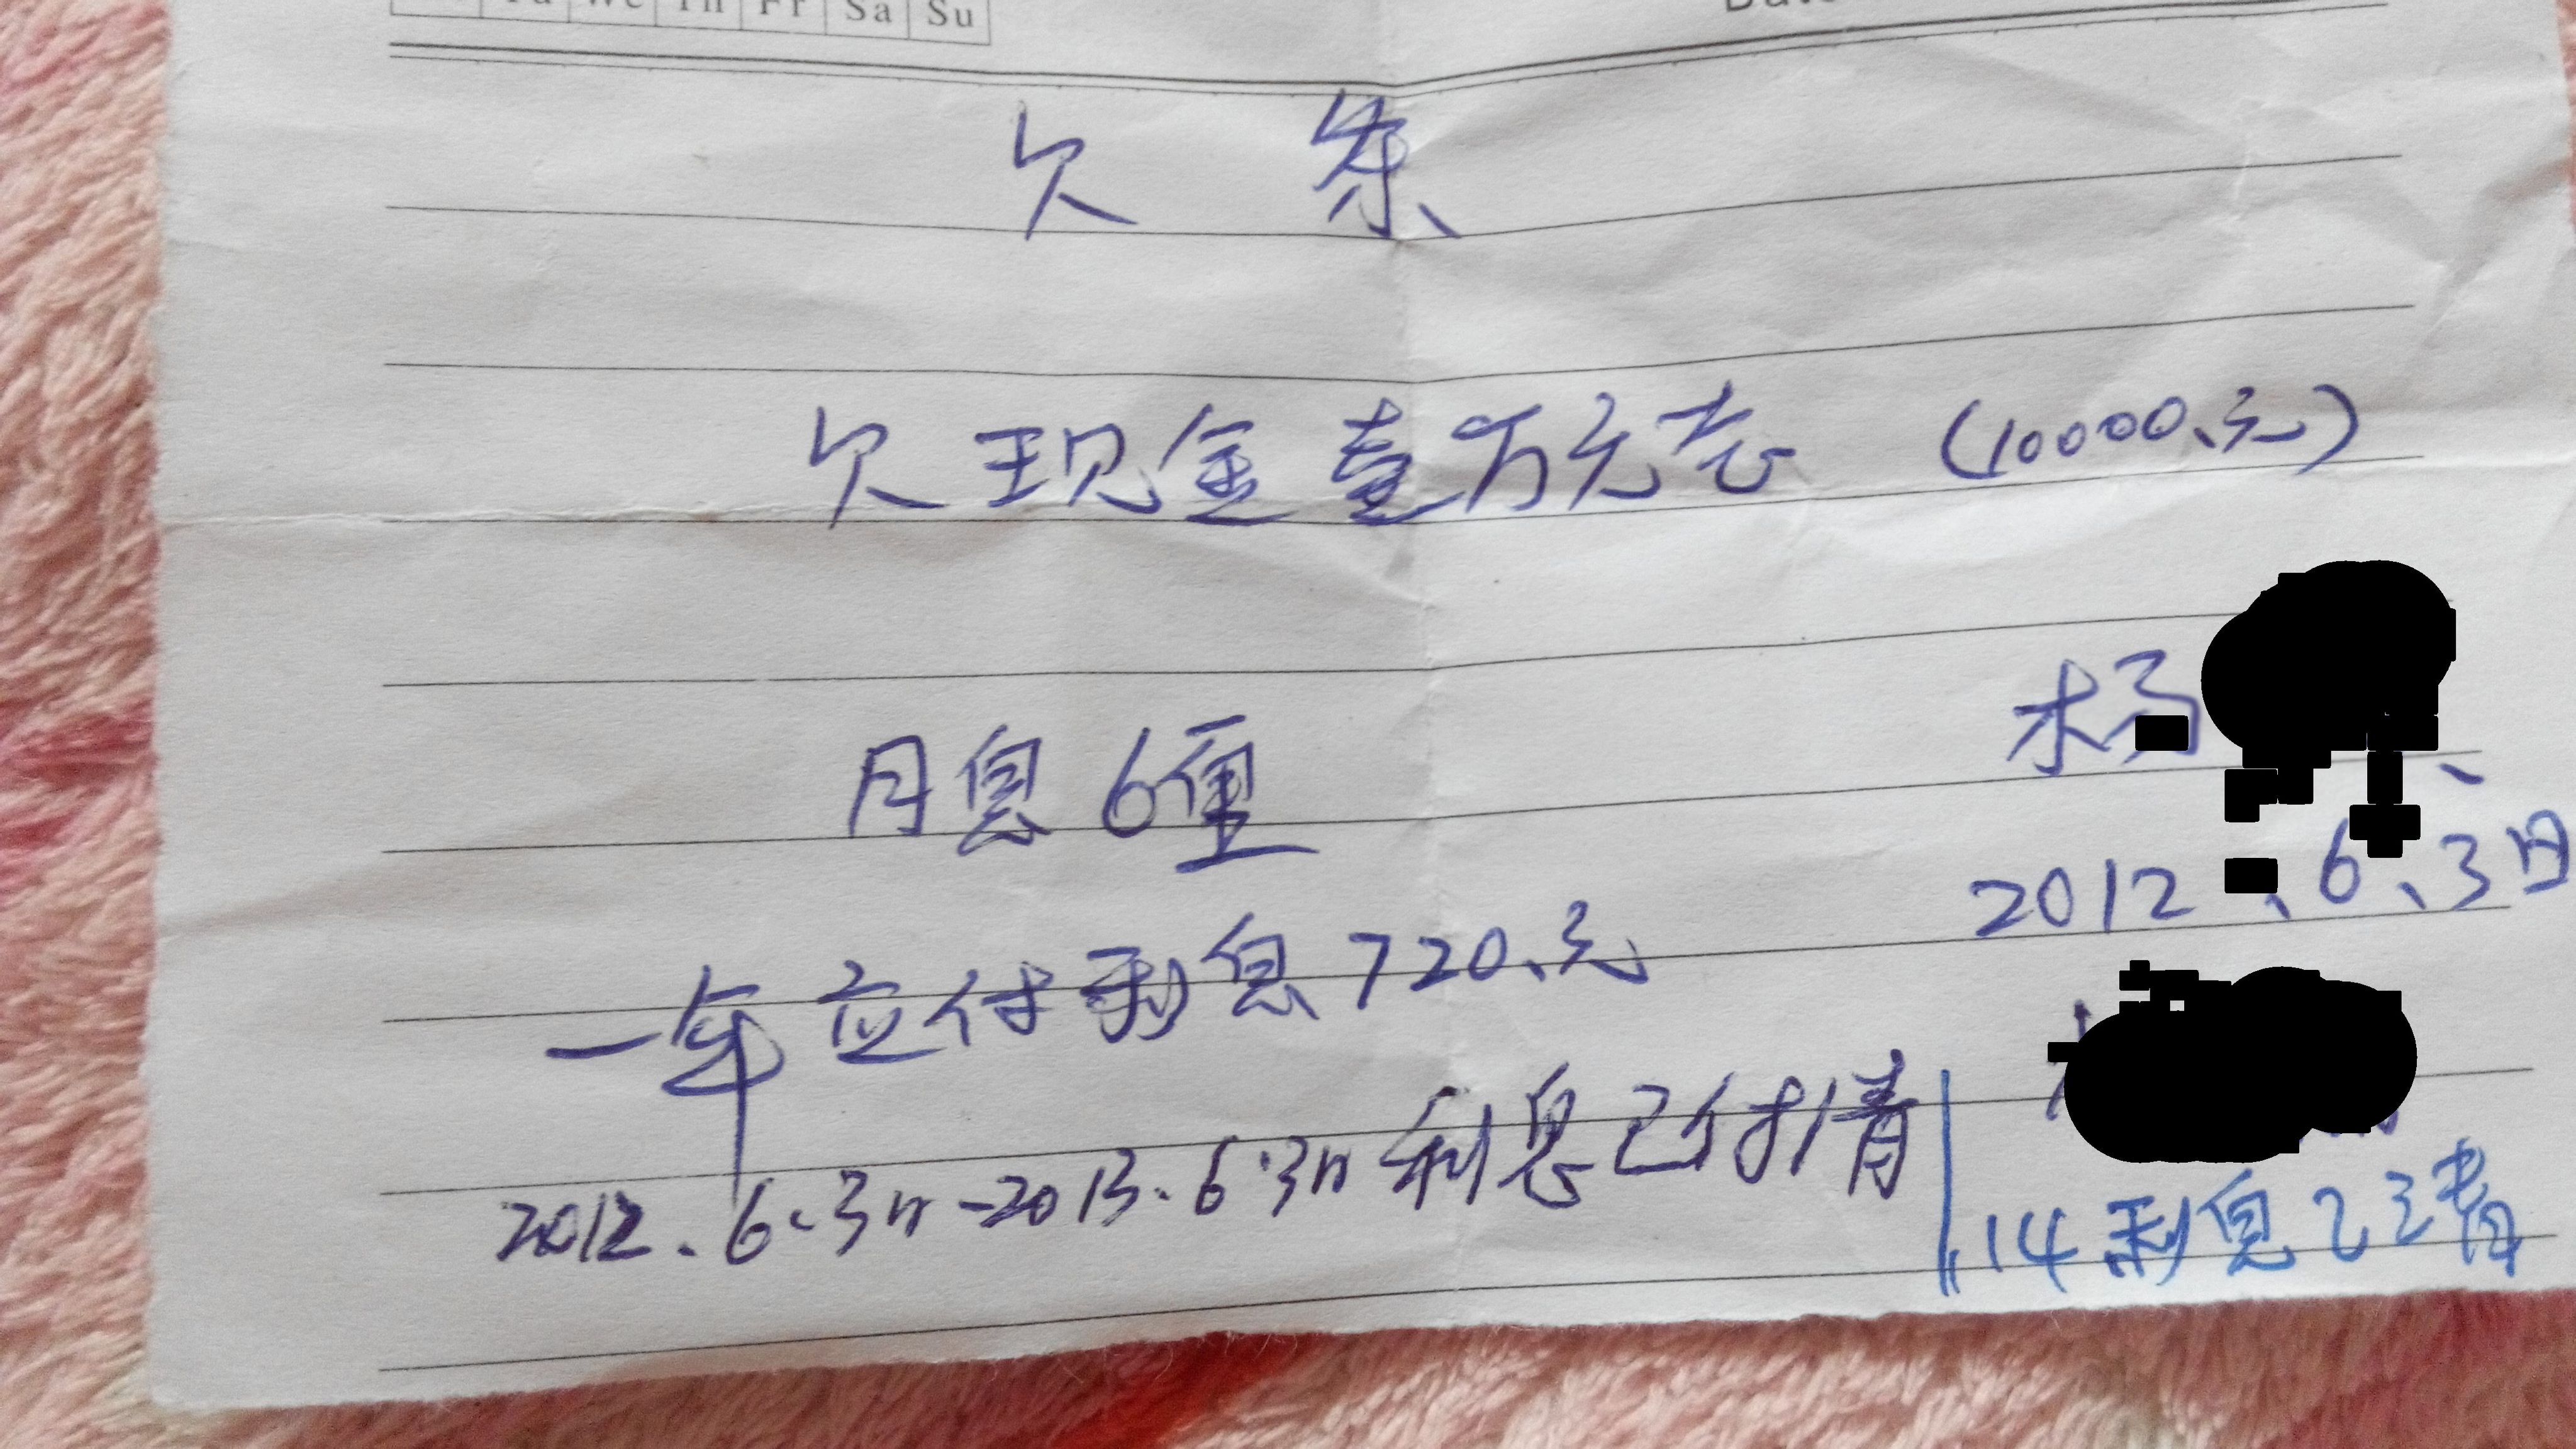 Tu We Th Fr Sa Su
Date
欠 条
欠现金壹万元老 (10000、元)
杨
月息6厘
2012、6、3日
一年应付利息720、元
2012.6.3日-2013.6.3日利息已付清
14利息已清